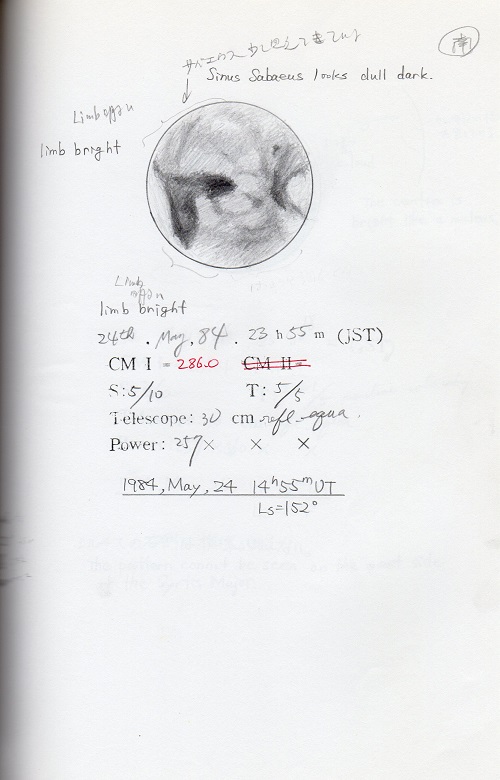 南
サバエウス少し
Sinus Sabaeus looks dull dark.
Limb
limb bright
Limb
limb bright
24th . May, 84 . 23 h 55 m (JST)
CM I = 286.0 CM II=
S: 5/10 T: 5/5
Telescope: 30 cm refl. equa.
Power: 257× × ×
1984, May, 24 14h 55m UT
Ls=152°